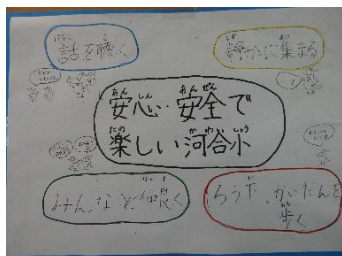 話を聴く
静かに集まる
安心・安全で
楽しい河合小
みんなと仲良く
ろう下、かいだんを
歩く